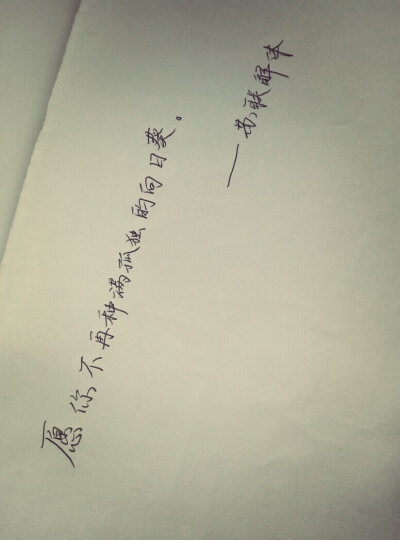 愿你不再种满孤独的向日葵。
——苏联解体